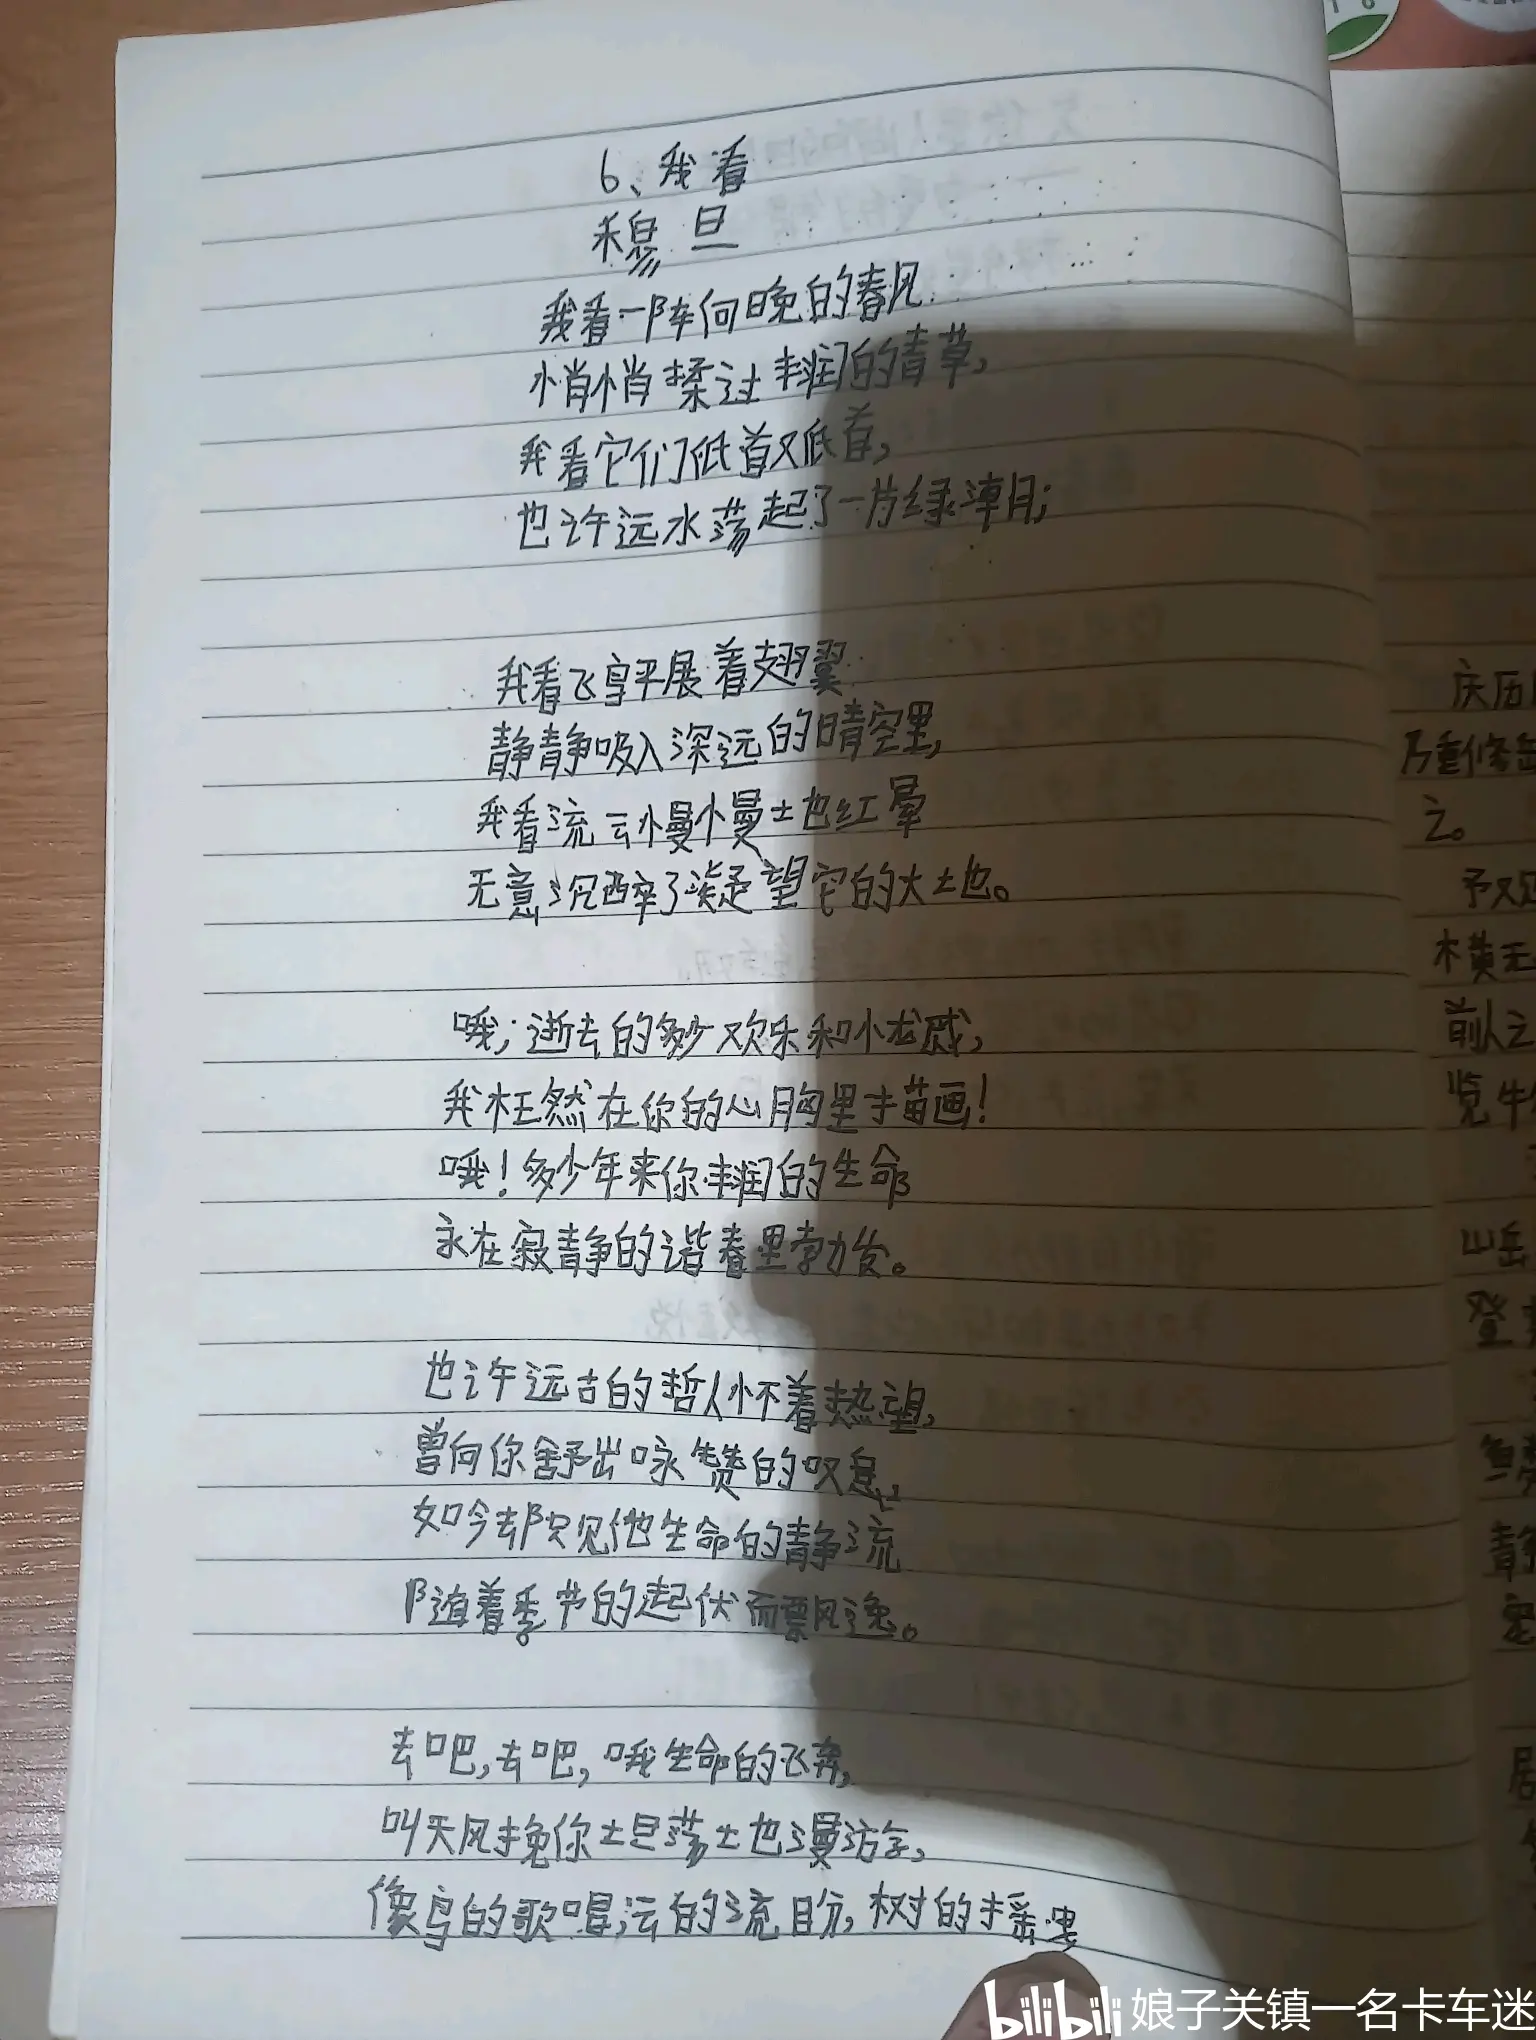 6、我看
穆旦
我看一阵向晚的春风
悄悄揉过丰润的青草,
我看它们低首又低首,
也许远水荡起了一片绿潮;
我看飞鸟平展着翅翼
静静吸入深远的晴空里,
我看流云慢慢地红晕
无意沉醉了凝望它的大地。
哦;逝去的多少欢乐和忧戚,
我枉然在你的心胸里描画!
哦!多少年来你丰润的生命
永在寂静的谐奏里勃发。
也许远古的哲人怀着热望,
曾向你舒出咏赞的叹息,
如今却只见他生命的静流
随着季节的起伏而飘逸。
去吧,去吧,哦生命的飞奔,
叫天风挽你坦荡地漫游,
像鸟的歌唱,云的流盼,树的摇曳
庆历
乃重修
之。
予观
横无
前人之
览
山岳
登
bilibili 娘子关镇一名卡车迷